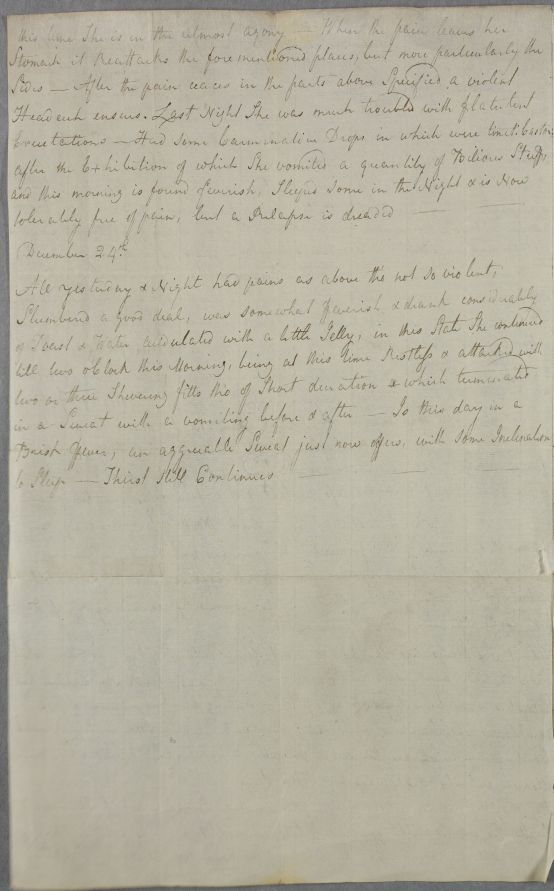 this time She is in the utmost agony — When the pain leaves her
Stomach it Reattacks the forementioned places, but more particularly the
Sides — After the pain ceaces in the parts above Specified a violent
Headach ensues. Last Night She was much troubled with flatulent
Eructations — Had some Carminative Drops in which were tinct: Castor:
after the Exhibition of which She vomited a quantity of Bilious Stuff,
and this morning is found feverish, Sleeped some in the Night & is Now
tolerably free of pain, but a Relapse is dreaded —
December 24th
All yesterday & Night had pains as above tho' not so violent,
Slumbered a good deal, was somewhat feverish & drank considerably
of Toast & Water acidulated with a little Jelly, in this State She continued
till two oClock this Morning, being at this time Restless & attacked with
two or three Shivering fitts tho' of Short duration & which terminated
in a Sweat with a vomiting before & after — Is this day in a
Brisk Fever, an aggreable Sweat just now offers, with some Inclination
to Sleep — Thirst still Continues —